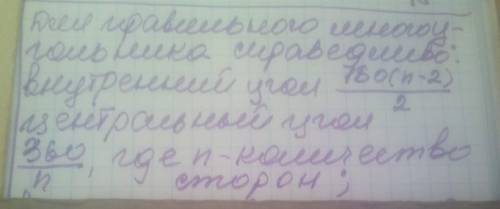 Для правильного многоу-
гольника справедливо:
внутренний угол 180(n-2)/2
центральный угол
360/n, где n-количество
сторон;